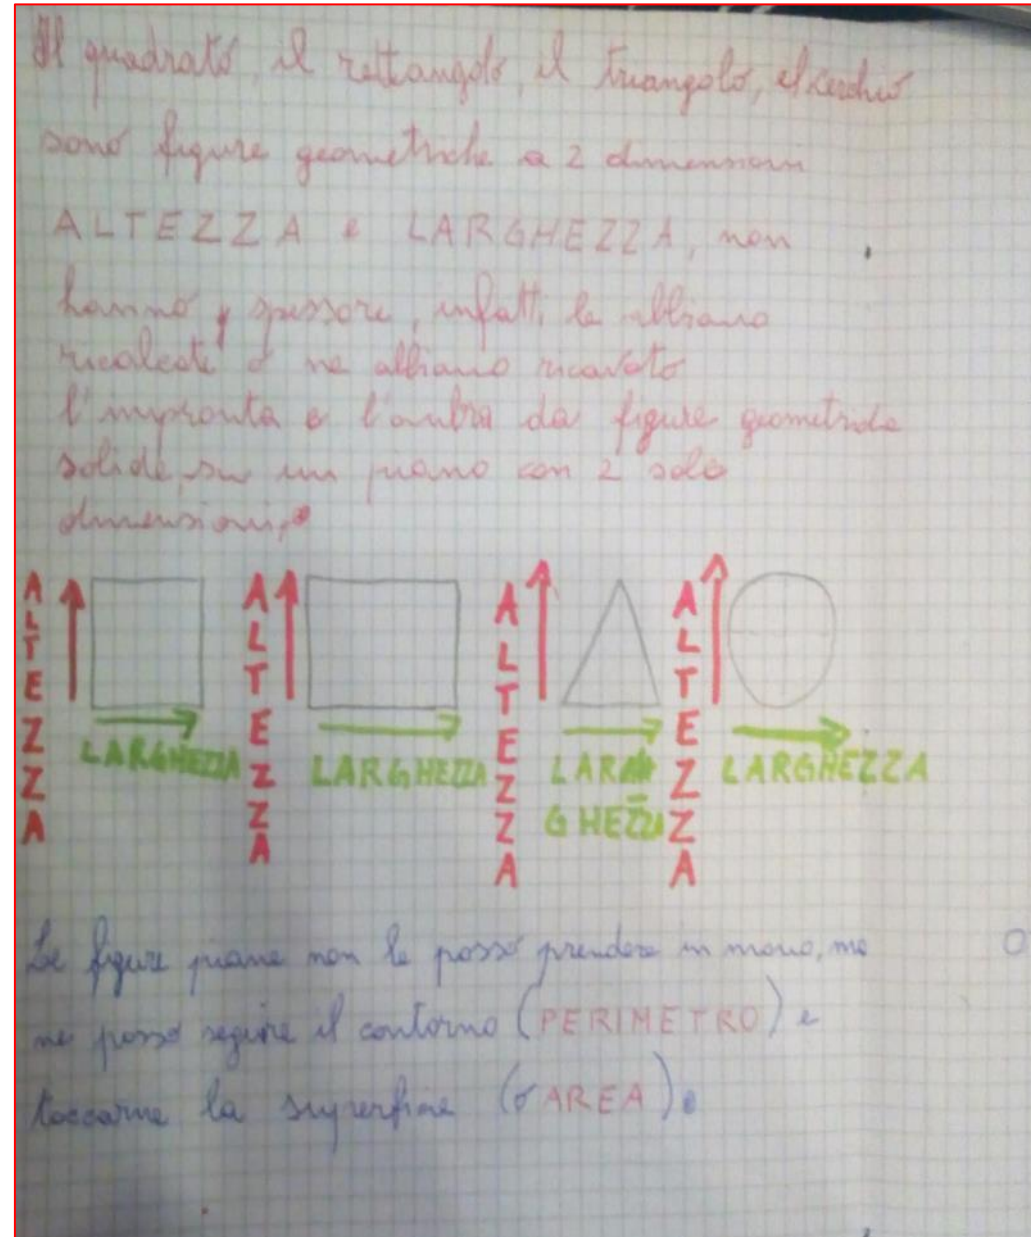 Il quadrato, il rettangolo, il triangolo, il cerchio
sono figure geometriche a 2 dimensioni
ALTEZZA e LARGHEZZA, non
hanno spessore, infatti le abbiamo
ricalcate o ne abbiamo ricavato
l'impronta o l'ombra da figure geometriche
solide, su un piano con 2 sole
dimensioni.
ALTEZZA
LARGHEZZA
ALTEZZA
LARGHEZZA
ALTEZZA
LAR
GHEZZA
ALTEZZA
LARGHEZZA
Le figure piane non le posso prendere in mano, ma
ne posso seguire il contorno (PERIMETRO) e
toccarne la superficie (o AREA).